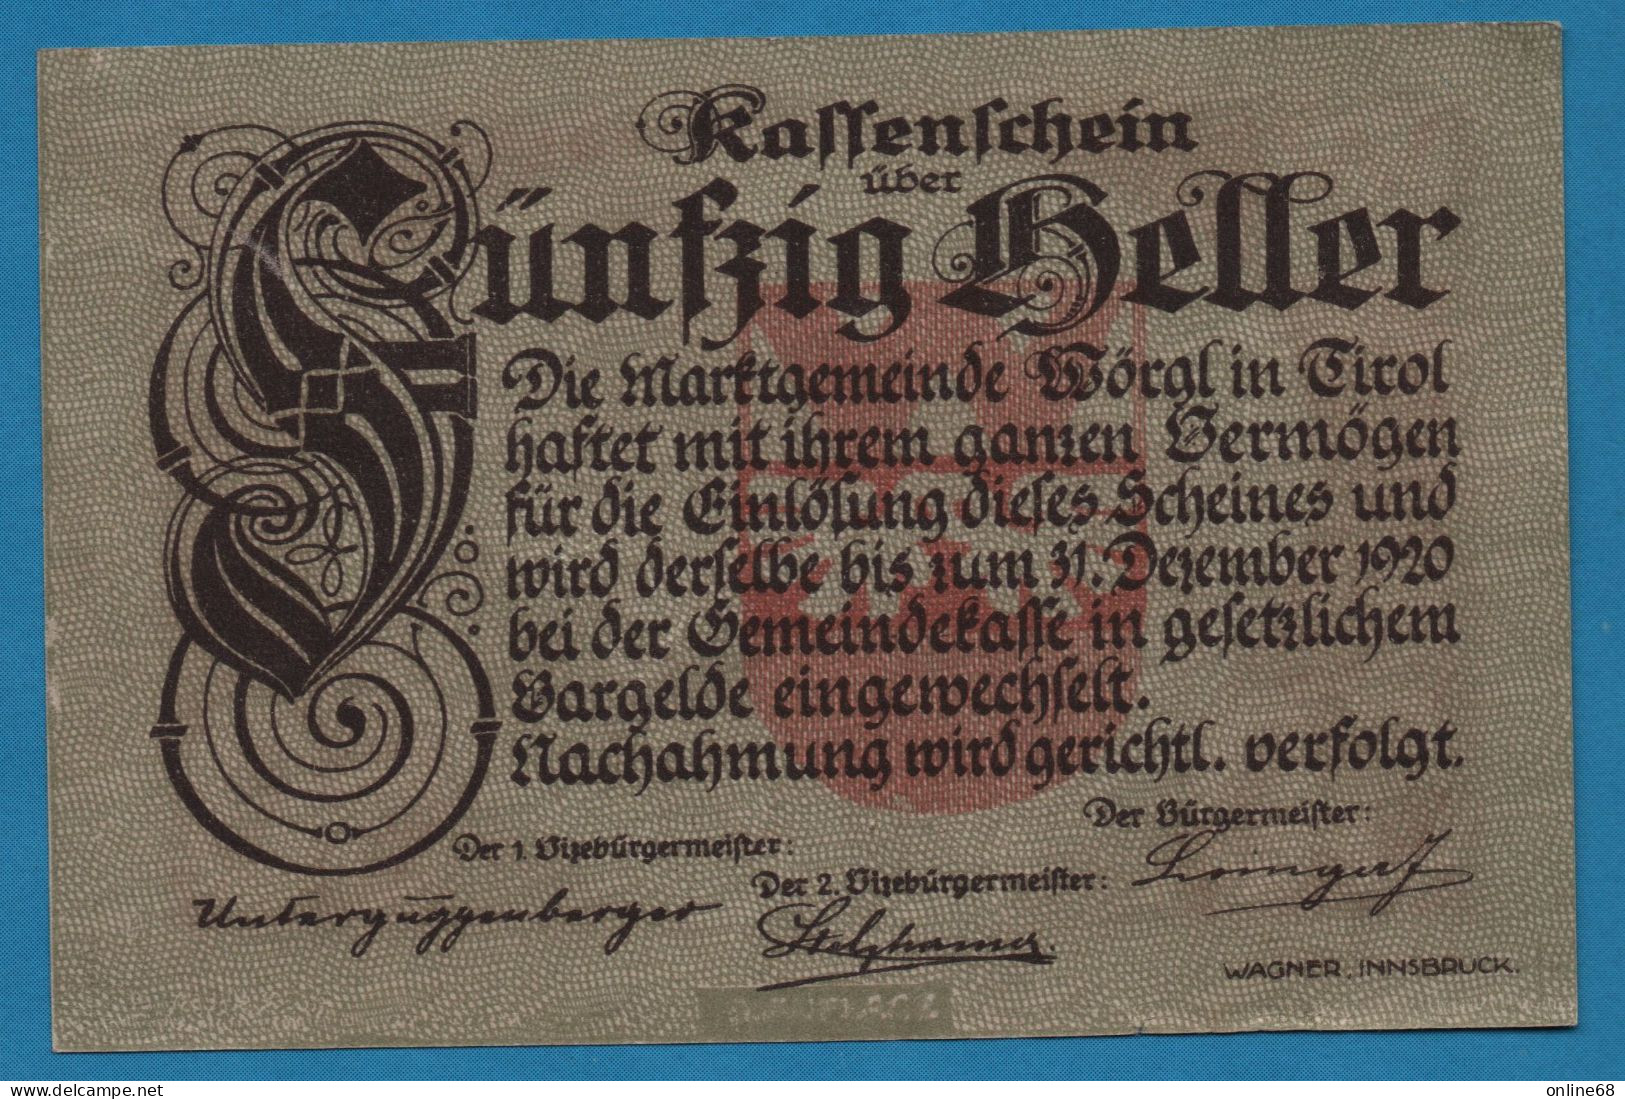 Kassenschein
über
Fünfzig Heller
Die Marktgemeinde Wörgl in Tirol
haftet mit ihrem ganzen Vermögen
für die Einlösung dieses Scheines und
wird derselbe bis zum 31. Dezember 1920
bei der Gemeindekasse in gesetzlichem
Bargelde eingewechselt.
Nachahmung wird gerichtl. verfolgt.
Der Bürgermeister:
Der 1. Vizebürgermeister:
Der 2. Vizebürgermeister:
Unterguggenberger
WAGNER, INNSBRUCK.
www.delcampe.net
online68